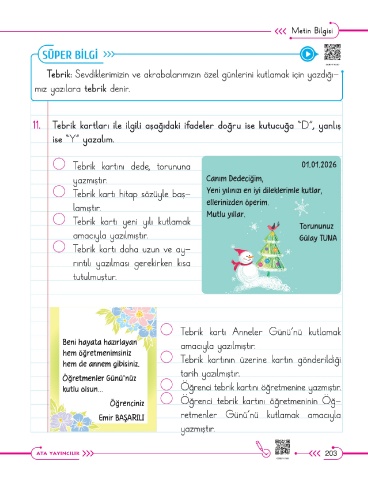 Metin Bilgisi
SÜPER BİLGİ
Tebrik: Sevdiklerimizin ve akrabalarımızın özel günlerini kutlamak için yazdığı-
mız yazılara tebrik denir.
11. Tebrik kartları ile ilgili aşağıdaki ifadeler doğru ise kutucuğa "D", yanlış
ise "Y" yazalım.
Tebrik kartını dede, torununa
yazmıştır.
Tebrik kartı hitap sözüyle baş-
lamıştır.
Tebrik kartı yeni yılı kutlamak
amacıyla yazılmıştır.
Tebrik kartı daha uzun ve ay-
rıntılı yazılması gerekirken kısa
tutulmuştur.
01.01.2026
Canım Dedeciğim,
Yeni yılınızı en iyi dileklerimle kutlar,
ellerinizden öperim.
Mutlu yıllar.
Torununuz
Gülay TUNA
Beni hayata hazırlayan
hem öğretmenimsiniz
hem de annem gibisiniz.
Öğretmenler Günü'nüz
kutlu olsun...
Öğrenciniz
Emir BAŞARILI
Tebrik kartı Anneler Günü'nü kutlamak
amacıyla yazılmıştır.
Tebrik kartının üzerine kartın gönderildiği
tarih yazılmıştır.
Öğrenci tebrik kartını öğretmenine yazmıştır.
Öğrenci tebrik kartını öğretmeninin Öğ-
retmenler Günü'nü kutlamak amacıyla
yazmıştır.
ATA YAYINCILIK
203